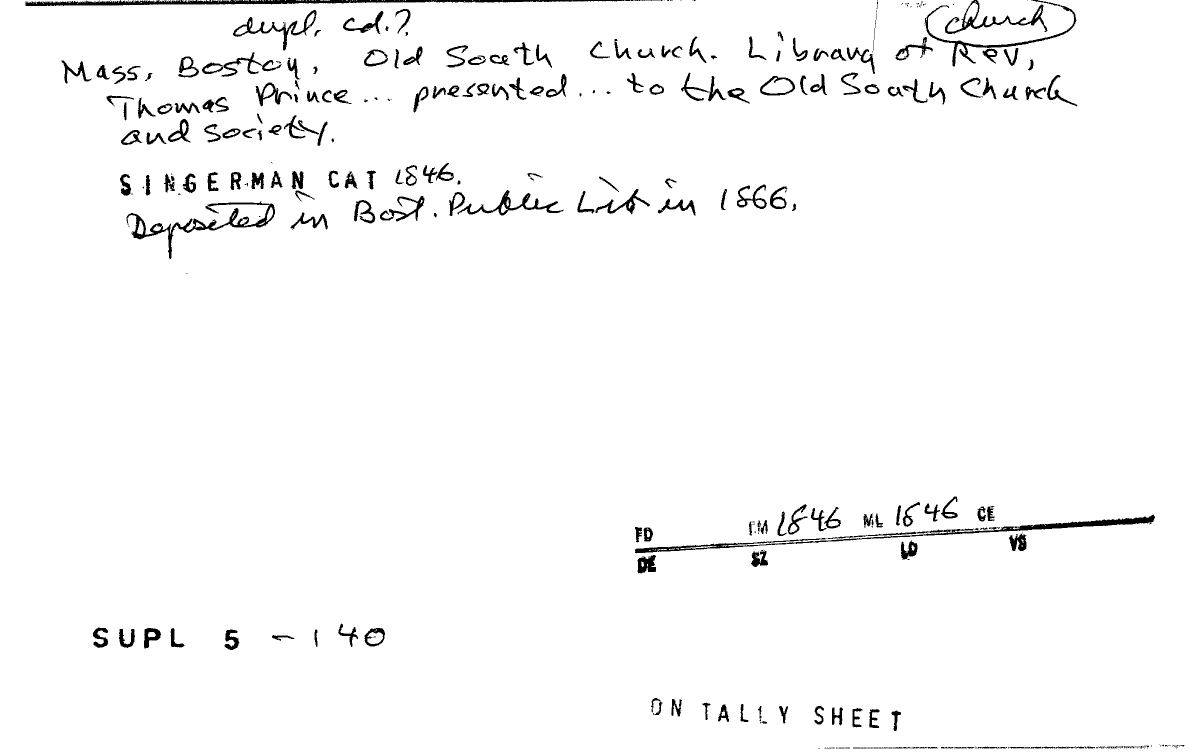 dupl. cd.?
church
Mass, Boston, Old South Church. Library of Rev,
Thomas Prince... presented... to the Old South Church
and society.
SINGERMAN CAT 1846.
Deposited in Bost. Public Lib in 1866.
FD EM 1846 ML 1846 CE
DE SZ LD VS
SUPL 5 - 140
ON TALLY SHEET